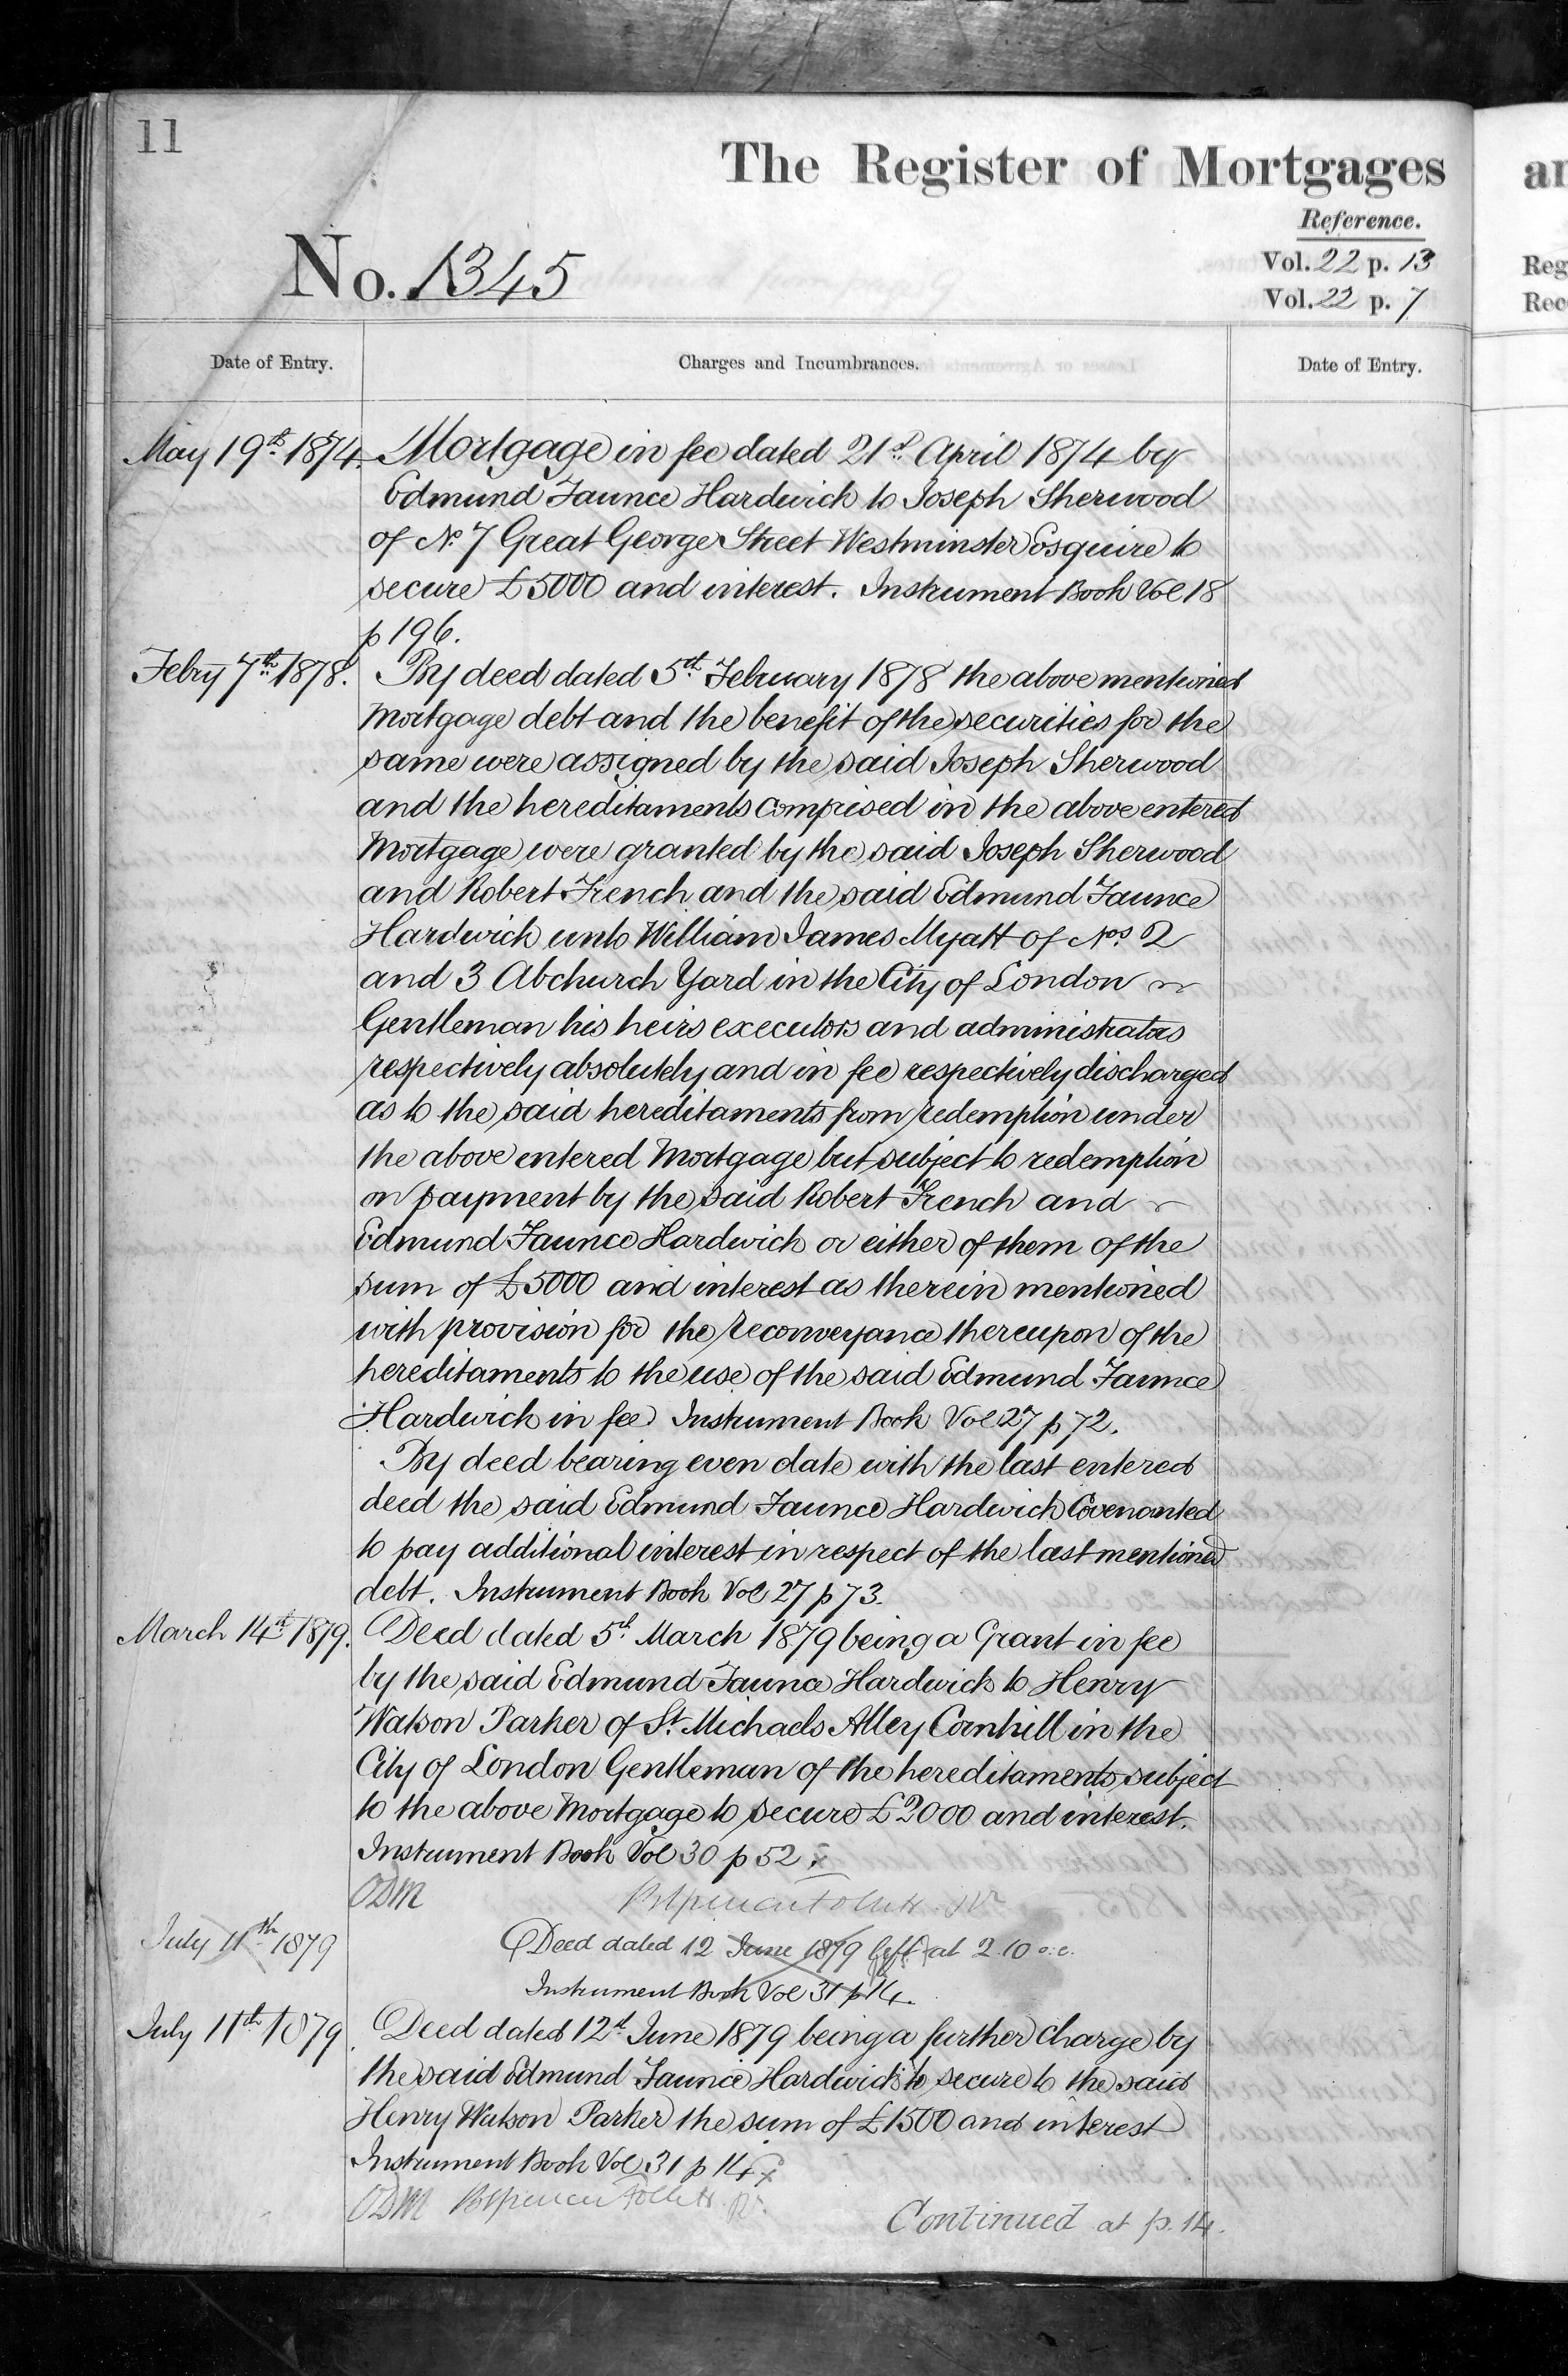 11
The Register of Mortgages
Reference.
No. 1345
Vol. 22 p. 13
Vol. 22 p. 7
Date of Entry.
Charges and Incumbrances.
Date of Entry.
May 19th 1874. Mortgage in fee dated 21st April 1874 by
Edmund Faunce Hardwick to Joseph Sherwood
of No. 7 Great George Street Westminster Esquire to
secure £5000 and interest. Instrument Book Vol 18
p 196.
Febry 7th 1878. By deed dated 5th February 1878 the above mentioned
Mortgage debt and the benefit of the securities for the
same were assigned by the said Joseph Sherwood
and the hereditaments comprised in the above entered
Mortgage were granted by the said Joseph Sherwood
and Robert French and the said Edmund Faunce
Hardwick unto William James Myatt of Nos. 2
and 3 Abchurch Yard in the City of London
Gentleman his heirs executors and administrators
respectively absolutely and in fee respectively discharged
as to the said hereditaments from redemption under
the above entered Mortgage but subject to redemption
on payment by the said Robert French and
Edmund Faunce Hardwick or either of them of the
sum of £5000 and interest as therein mentioned
with provision for the reconveyance thereupon of the
hereditaments to the use of the said Edmund Faunce
Hardwick in fee. Instrument Book Vol 27 p 72.
By deed bearing even date with the last entered
deed the said Edmund Faunce Hardwick Covenanted
to pay additional interest in respect of the last mentioned
debt. Instrument Book Vol 27 p 73.
March 14th 1879. Deed dated 5th March 1879 being a Grant in fee
by the said Edmund Faunce Hardwick to Henry
Watson Parker of St. Michaels Alley Cornhill in the
City of London Gentleman of the hereditaments subject
to the above Mortgage to secure £2000 and interest.
Instrument Book Vol 30 p 52 x
ODM
July 11th 1879 Deed dated 12 June 1879 left at 2.10 o.c.
Instrument Book Vol 31 p 14.
July 11th 1879. Deed dated 12th June 1879 being a further charge by
the said Edmund Faunce Hardwick to secure to the said
Henry Watson Parker the sum of £1500 and interest
Instrument Book Vol 31 p 14 x
ODM
Continued at p. 14.
an
Reg
Rec